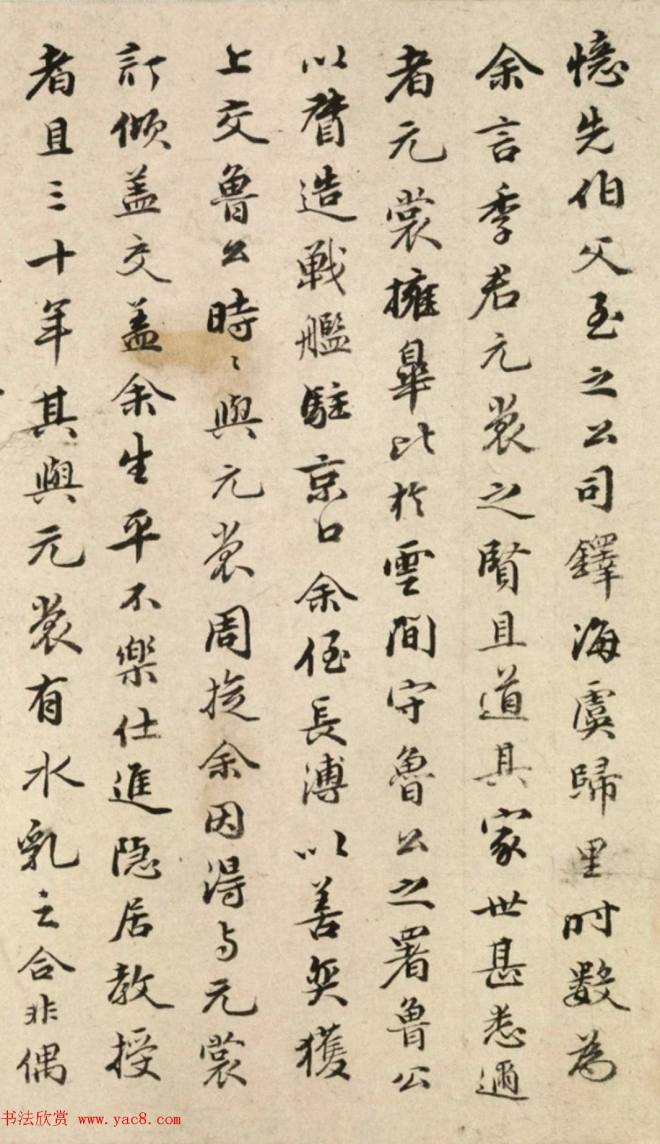 憶先伯父至之公司鐸海虞歸里時數為
余言季君元裳之賢且道其家世甚悉邇
者元裳擁皐比於雲間守魯公之署魯公
以督造戰艦駐京口余侄長溥以善奕獲
上交魯公時〻與元裳周旋余因得与元裳
訂傾盖交盖余生平不樂仕進隐居教授
者且三十年其與元裳有水乳之合非偶
书法欣赏 www.yac8.com